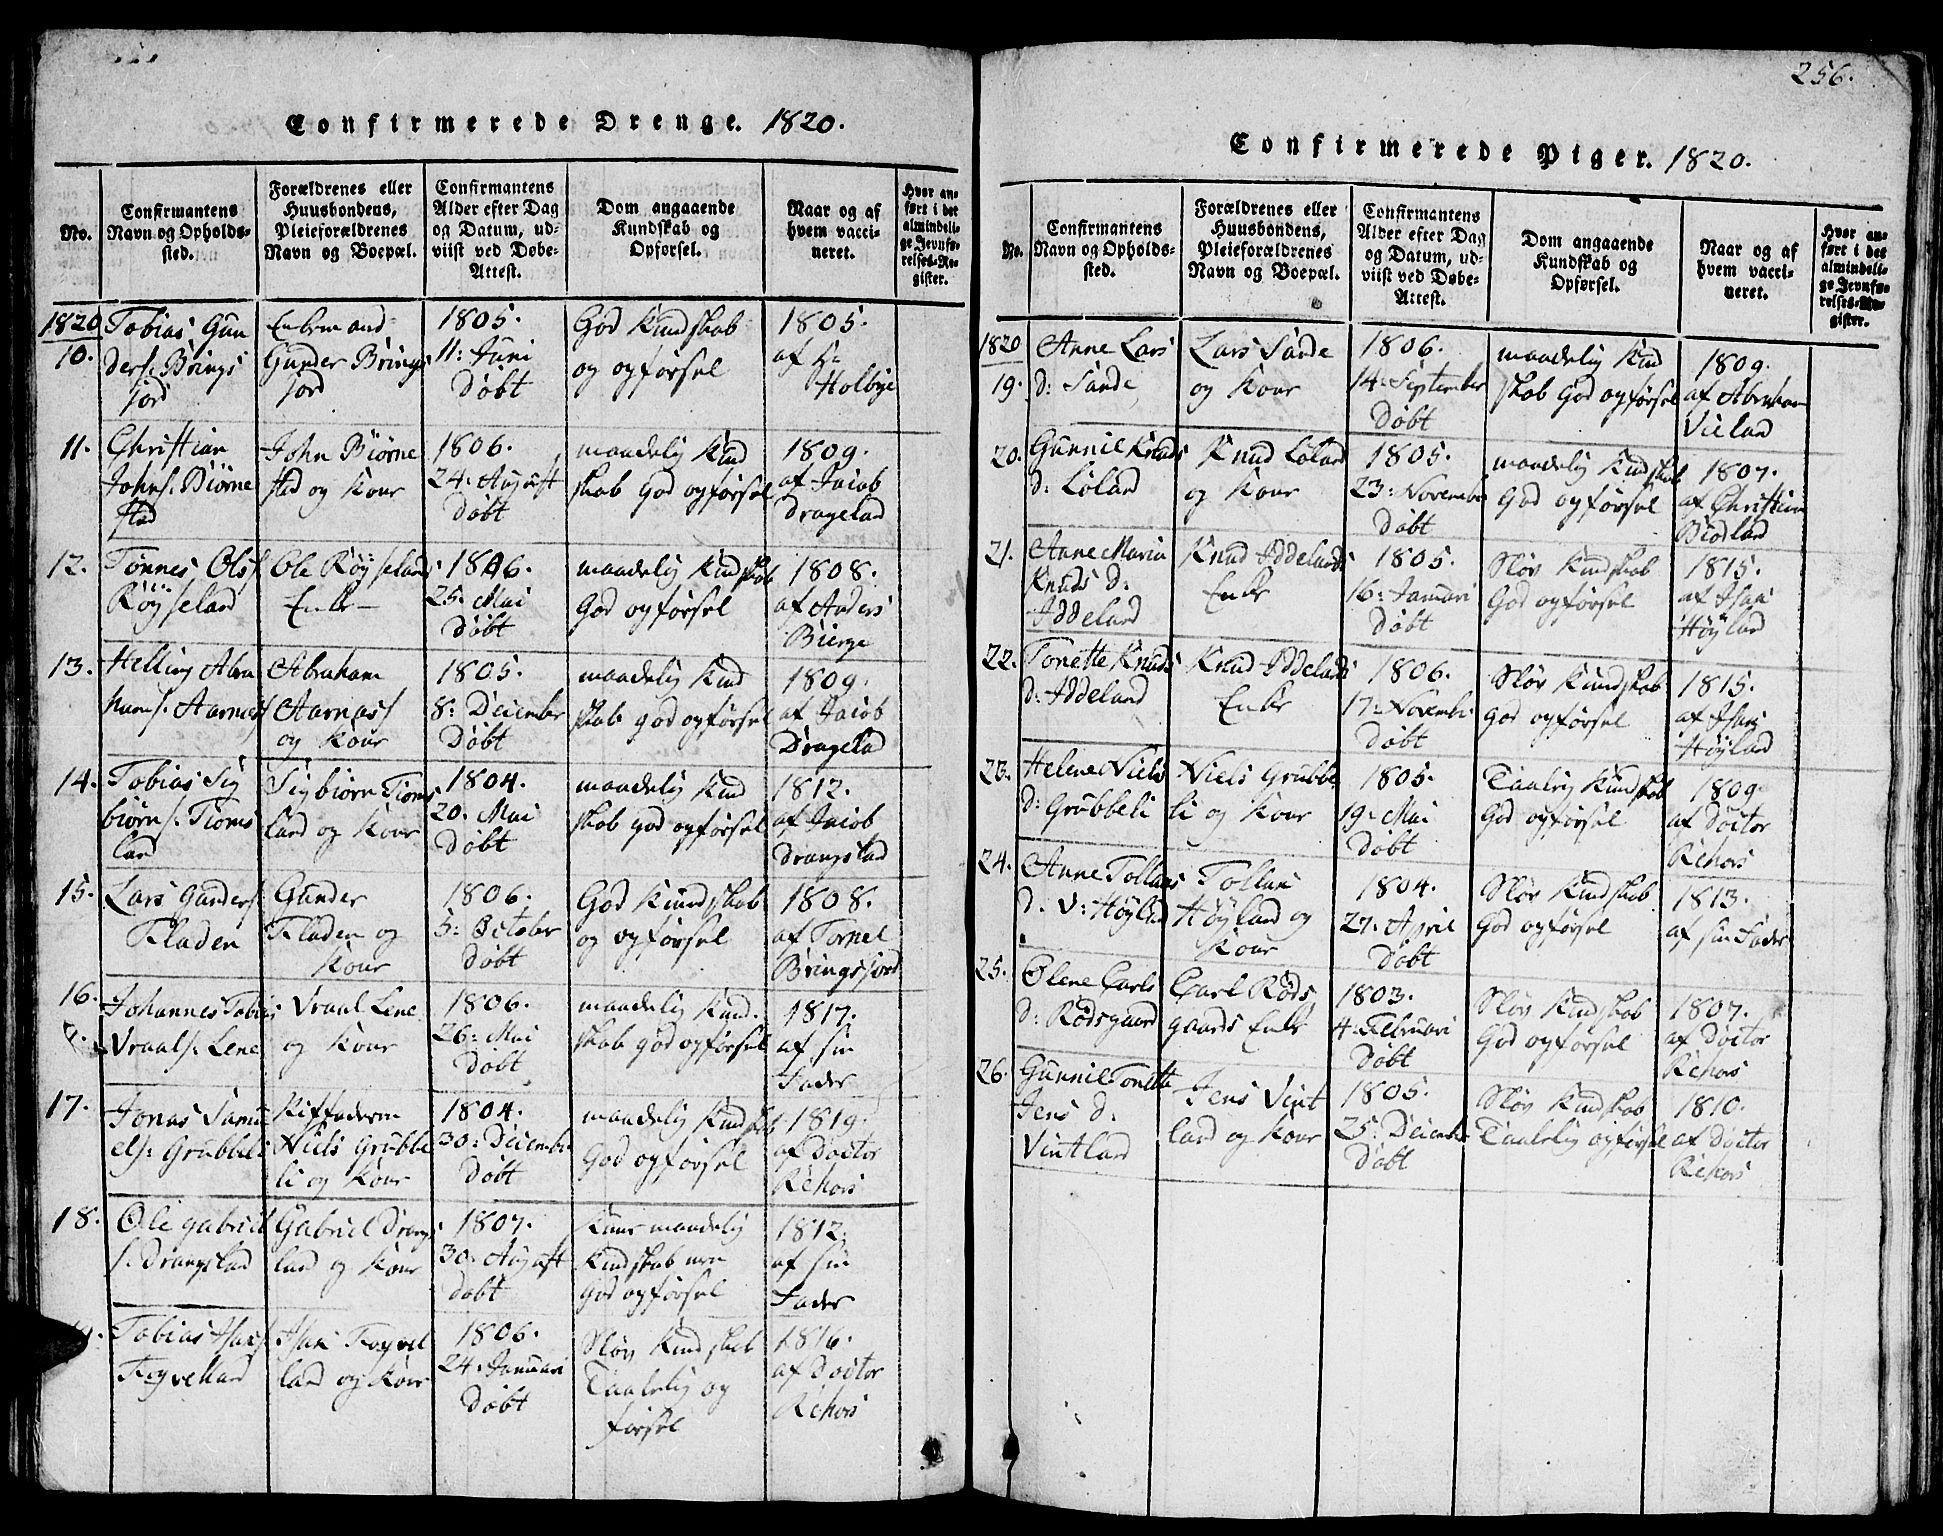 Confirmerede Drenge. 1820.
No.
Confirmantens
Navn og Opholds-
sted.
Forældrenes eller
Huusbondens,
Pleieforældrenes
Navn og Boepæl.
Confirmantens
Alder efter Dag
og Datum, ud-
viist ved Døbe-
Attest.
Dom angaaende
Kundskab og
Opførsel.
Naar og af
hvem vacci-
neret.
Hvor an-
ført i det
almindeli-
ge Jevnfø-
relses-Re-
gister.
1820
10.
Tobias Gun
ders. Brings
jord
Enkemand
Gunder Brings
jord
1805.
11: Juni
Døbt
God Kundskab
og opførsel
1805.
af Hr
Holbye
11.
Christian
Johns. Biørne
stad
John Biørne
stad og Kone
1806.
24: August
Døbt
maadelig Kund
skab God opførsel
1809.
af Jacob
Drageland
12.
Tønnes Ols.
Røÿseland
Ole Røÿselands
Enke
1806.
25: Mai
Døbt
maadelig Kundskab
God opførsel
1808.
af Anders
Bierge
13.
Helling Abra
hams. Aarnes
Abraham
Aarnas
og Kone
1805.
8: December
Døbt
maadelig Kund
skab god opførsel
1809.
af Jacob
Drageland
14.
Tobias Sig
biørns. Tioms
land
Sigbiørn Tioms
land og Kone
1804.
20. Mai
Døbt
maadelig Kund
skab god opførsel
1812.
af Jacob
Drangsland
15.
Lars Gunders.
Fladen
Gunder
Fladen og
Kone
1806.
5: October
Døbt
God Kundskab
og opførsel
1808.
af Tornel
Bringsjord
16.
Johannes Tobias
Vraals. Lene
Vraal Lene
og Kone
1806.
26: Mai
Døbt
maadelig Kund.
skab god opførsel
1817.
af sin
Fader
17.
Jonas Samu
els: Grubbeli
Stiffaderen
Niels Grubbe
li og Kone
1804.
30: December
Døbt
maadelig Kundskab
God opførsel
1819.
af Doctor
Rehors
18.
Ole Gabriel
s. Drangsland
Gabriel Drangs
land og Kone
1807.
30: August
døbt
Kuns maadelig
Kundskab men
God opførsel
1812.
af sin
Fader
Tobias Isaks.
Fogvelland
Isak Fogvel
land og Kone
1806.
24: Januari
Døbt
Sløv Kundskab
Taalelig op
førsel
1816.
af Doctor
Rehors
256.
Confirmerede Piger. 1820.
No.
Confirmantens
Navn og Opholds-
sted.
Forældrenes eller
Huusbondens,
Pleieforældrenes
Navn og Boepæl.
Confirmantens
Alder efter Dag
og Datum, ud-
viist ved Døbe-
Attest.
Dom angaaende
Kundskab og
Opførsel.
Naar og af
hvem vacci-
neret.
Hvor an-
ført i det
almindeli-
ge Jevnfø-
relses-Re-
gister.
1820
19.
Anne Lars
d: Sande
Lars Sande
og Kone
1806.
14: September
Døbt
maadelig Kund
skab God opførsel
1809.
af Abraham
Vieland
20.
Gunnil Knuds
d: Løland
Knud Løland
og Kone
1805.
23: November
Døbt
maadelig Kundskab
God opførsel
1807.
af Christian
Biødland
21.
Anne Maria
Knuds d:
Iddeland
Knud Iddelands
Enke
1805.
16: Januari
Døbt
Sløv Kundskab
God opførsel
1815.
af Isac
Høÿland
22.
Tonette Knuds
d: Iddeland
Knud Iddelands
Enke
1806.
17: November
døbt
Sløv Kundskab
God opførsel
1815.
af Isac
Høÿland
23.
Helene Niels
d: Grubbeli
Niels Grubbe
li og Kone
1805.
19: Mai
Døbt
Taalig Kundskab
God opførsel
1809.
af Doctor
Rehors
24.
Anne Tollacs
d. V: Høÿland
Tollac
Høÿland og
Kone
1804.
27: April
Døbt
Sløv Kundskab
God opførsel
1813.
af sin Fader
25.
Olene Carls
d: Rødsgaard
Carl Røds
gaards Enke
1803.
4: Februari
Døbt
Sløv Kundskab
God opførsel
1807.
af Doctor
Rehors
26.
Gunnil Tonette
Jens d.
Vintland
Jens Vint
land og Kone
1805.
25: December
Døbt
Sløv Kundskab
Taalelig opførsel
1810.
af Doctor
Rehors